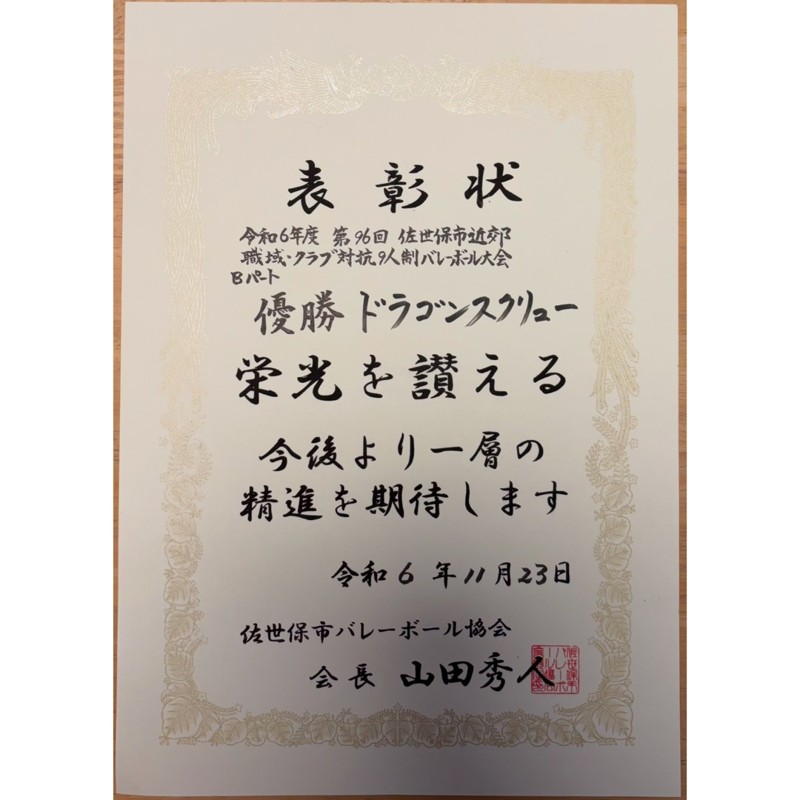 表彰状
令和6年度 第96回 佐世保市近郊
職域・クラブ対抗9人制バレーボール大会
Bパート
優勝 ドラゴンスクリュー
栄光を讃える
今後より一層の
精進を期待します
令和6年11月23日
佐世保市バレーボール協会
会長 山田秀人